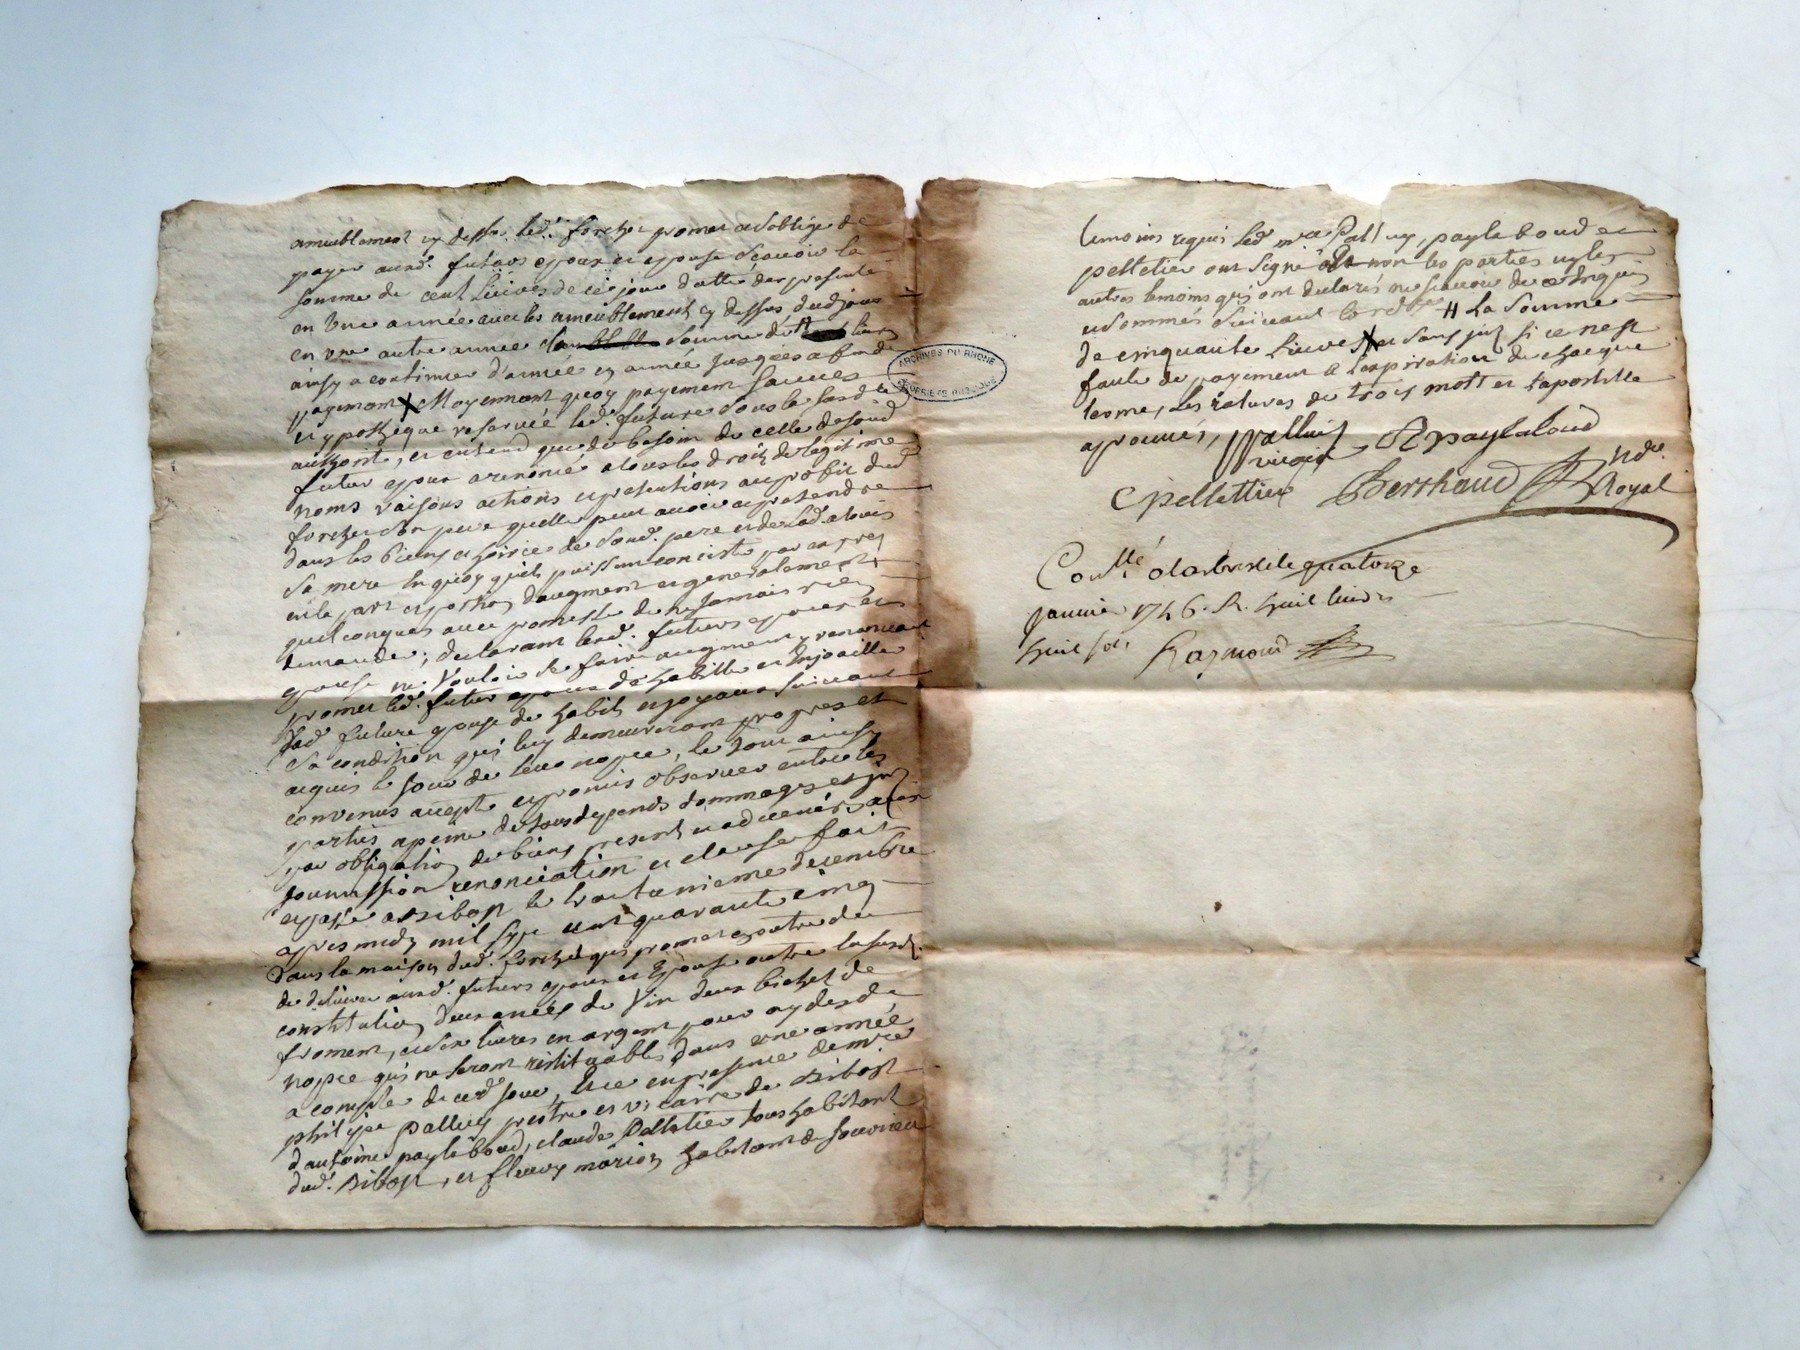 ameublement cy dessus led. forchet promet et s'oblige de
payer ausd. futurs epoux et epouse sçavoir la
somme de cent livres de ce jour datte des presente
en une année avec les ameublement cy dessus dud jour
en une autre année somme de livres
ainsy a continuer d'année en année jusques a fin de
payement Moyennant quoy payement sauves
et ypotheque reservée lad. future sous le susd
authorité, et entend que de besoin de celle de soud
futur epoux a renoncé a tous les droits de legitime
noms raisons actions et pretentions au profit dud
forchet son pere quelle peut avoir et pretendre
dans les biens et hoiries de soud. pere et de lad.
sa mere en quoy quils puissent consister par expres
en la part et portion daugment et generalement
quelconques avec promesse de n'y jamais rien
demander; declarant lesd. futurs epoux et
epouse ne vouloir se faire augment y renonceant
promet led. futur epoux de habiller et enjoailler
lad. future epouse de habits et joyaux suivant
sa condition qui luy demeureront propres et
acquis le jour de leur nopce, le tout ainsy
convenus accepté et promis observer entre les
parties a peine de tous depends dommages et
par obligation de biens presents et advenirs avec
soumission renonciation et clause fait
et passé a Bibost le trantenieme decembre
apres midy mil sept cent quarante cinq
dans la maison dud. forchet qui promet en outre de
de delivrer ausd. futurs epoux et Epouse outre la susd.
constitution deux anées de Vin deux bichet de
froment, et dix livres en argent pour aydes de
nopce qui ne seront restituables dans une année
a compte de ced. jour, leu en presence de mre
philipe Palluy prestre et vicaire de Bibost
d'antoine paylaboud, claude Pelletier tous habitant
dud. Bibost, et fleury marion habitant de souvieu
temoins requis led mre Palluy, paylaboud et
pelletier ont signé non les parties ny les
autres temoins qui ont declarés ne sçavoir de ce enquis
et sommés suivant lord H La somme
de cinquante Livres X et sans si ce nest
faute de payement a l'expiration de chacque
terme, les ratures de trois mots et l'apostille
aprouvés, Palluy Apaylaboud
vicaire
Cpellettier Berthaud Nre.
Royal
Coullé alarbresle quatorze
Janvier 1746. R. huit livres
huit sols Raymond
ARCHIVES DU RHONE
PROPRIETE PUBLIQUE